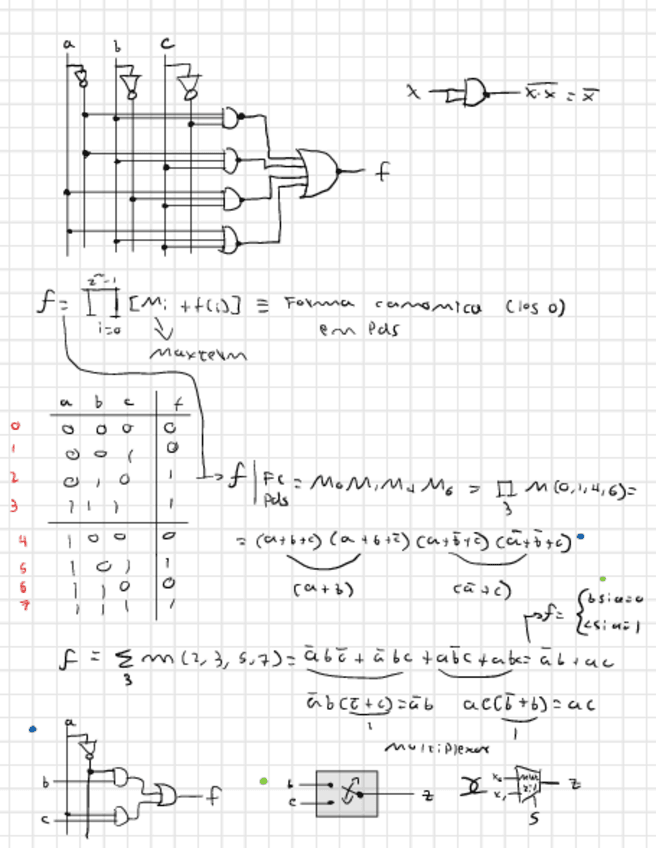 a b c
x x·x = x̅
f
f = ∏ [Mi + f(i)] ≡ Forma canonica (los 0)
i=0 en Pds
Maxterm
a b c f
0 0 0 0 0
1 0 0 1 0
2 0 1 0 1
3 1 1 1 1
4 1 0 0 0
5 1 0 1 1
6 1 1 0 0
7 1 1 1 1
f | FC Pds = M0 M1 M4 M6 = ∏3 M(0,1,4,6)=
= (a+b+c) (a+b+c̅) (a+b̅+c̅) (a̅+b̅+c)
(a+b) (a̅+c)
f = { b si a=0
c si a=1
f = Σ3 m(2,3,5,7) = a̅bc̅ + a̅bc + ab̅c + abc = a̅b + ac
a̅b(c̅+c) = a̅b ac(b̅+b) = ac
1 1
Multiplexor
a
b
c
f
b
c
z
x0
x1
mux
2:1
z
S